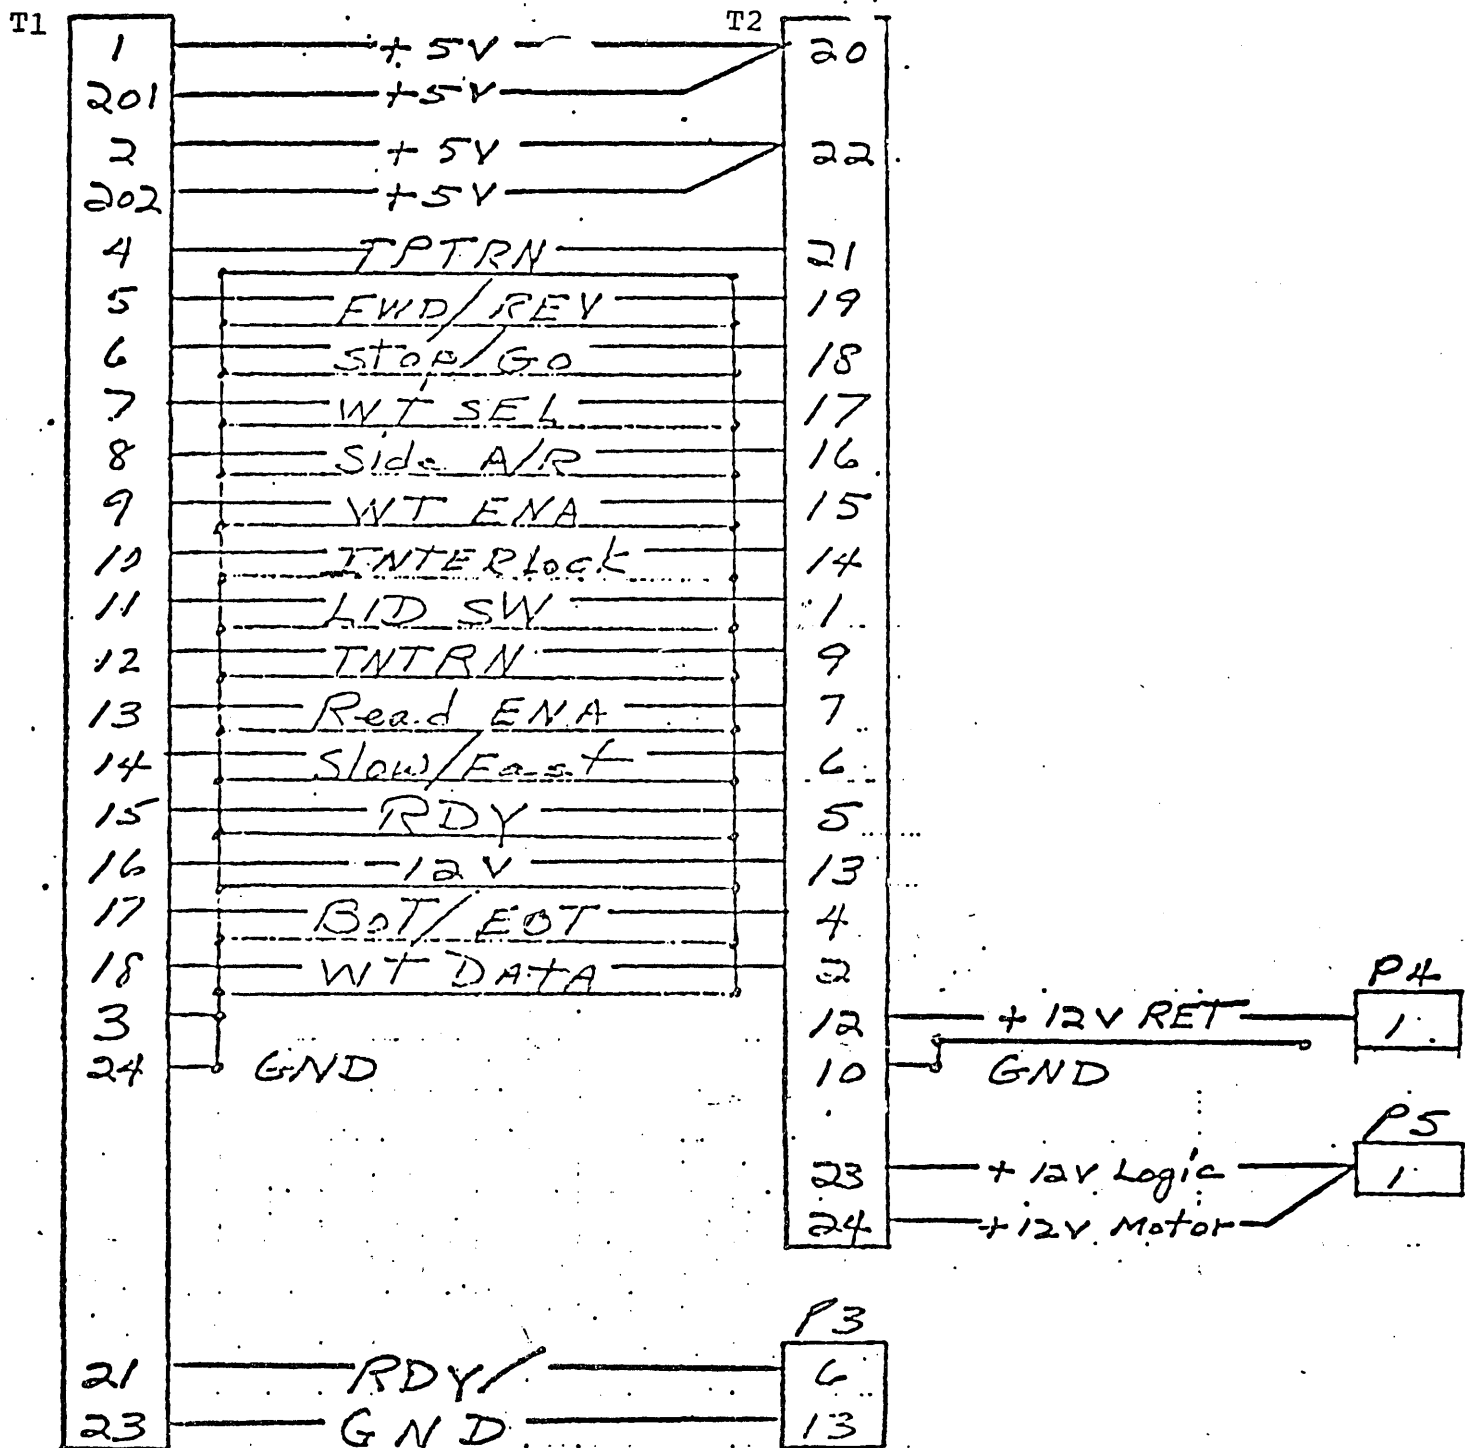 T1 T2
1 + 5V 20
201 +5V
2 + 5V 22
202 +5V
4 TPTRN 21
5 FWD/REV 19
6 Stop/Go 18
7 WT SEL 17
8 Side A/R 16
9 WT ENA 15
10 INTERLock 14
11 LID SW 1
12 TNTRN 9
13 Read ENA 7
14 Slow/Fast 6
15 RDY 5
16 -12V 13
17 BOT/EOT 4
18 WT DATA 2
P4
3 12 + 12V RET 1
24 GND 10 GND
P5
23 + 12V Logic 1
24 +12V Motor
P3
21 RDY/ 6
23 GND 13